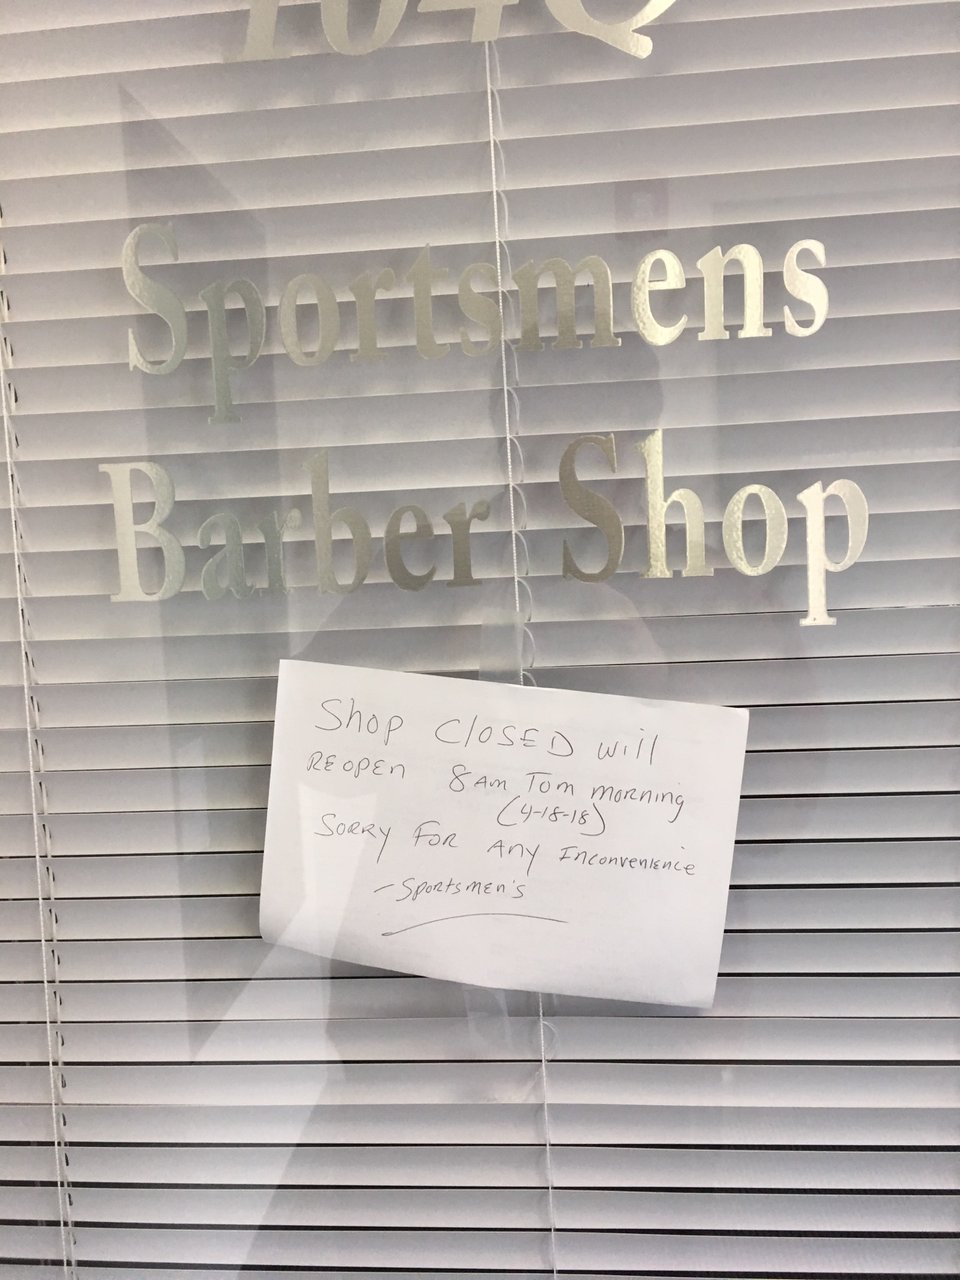 104Q
Sportsmens
Barber Shop
Shop CLOSED will
REOPEN 8AM Tom MORNING
(4-18-18)
SORRY FOR ANY INCONVENIENCE
- Sportsmen's